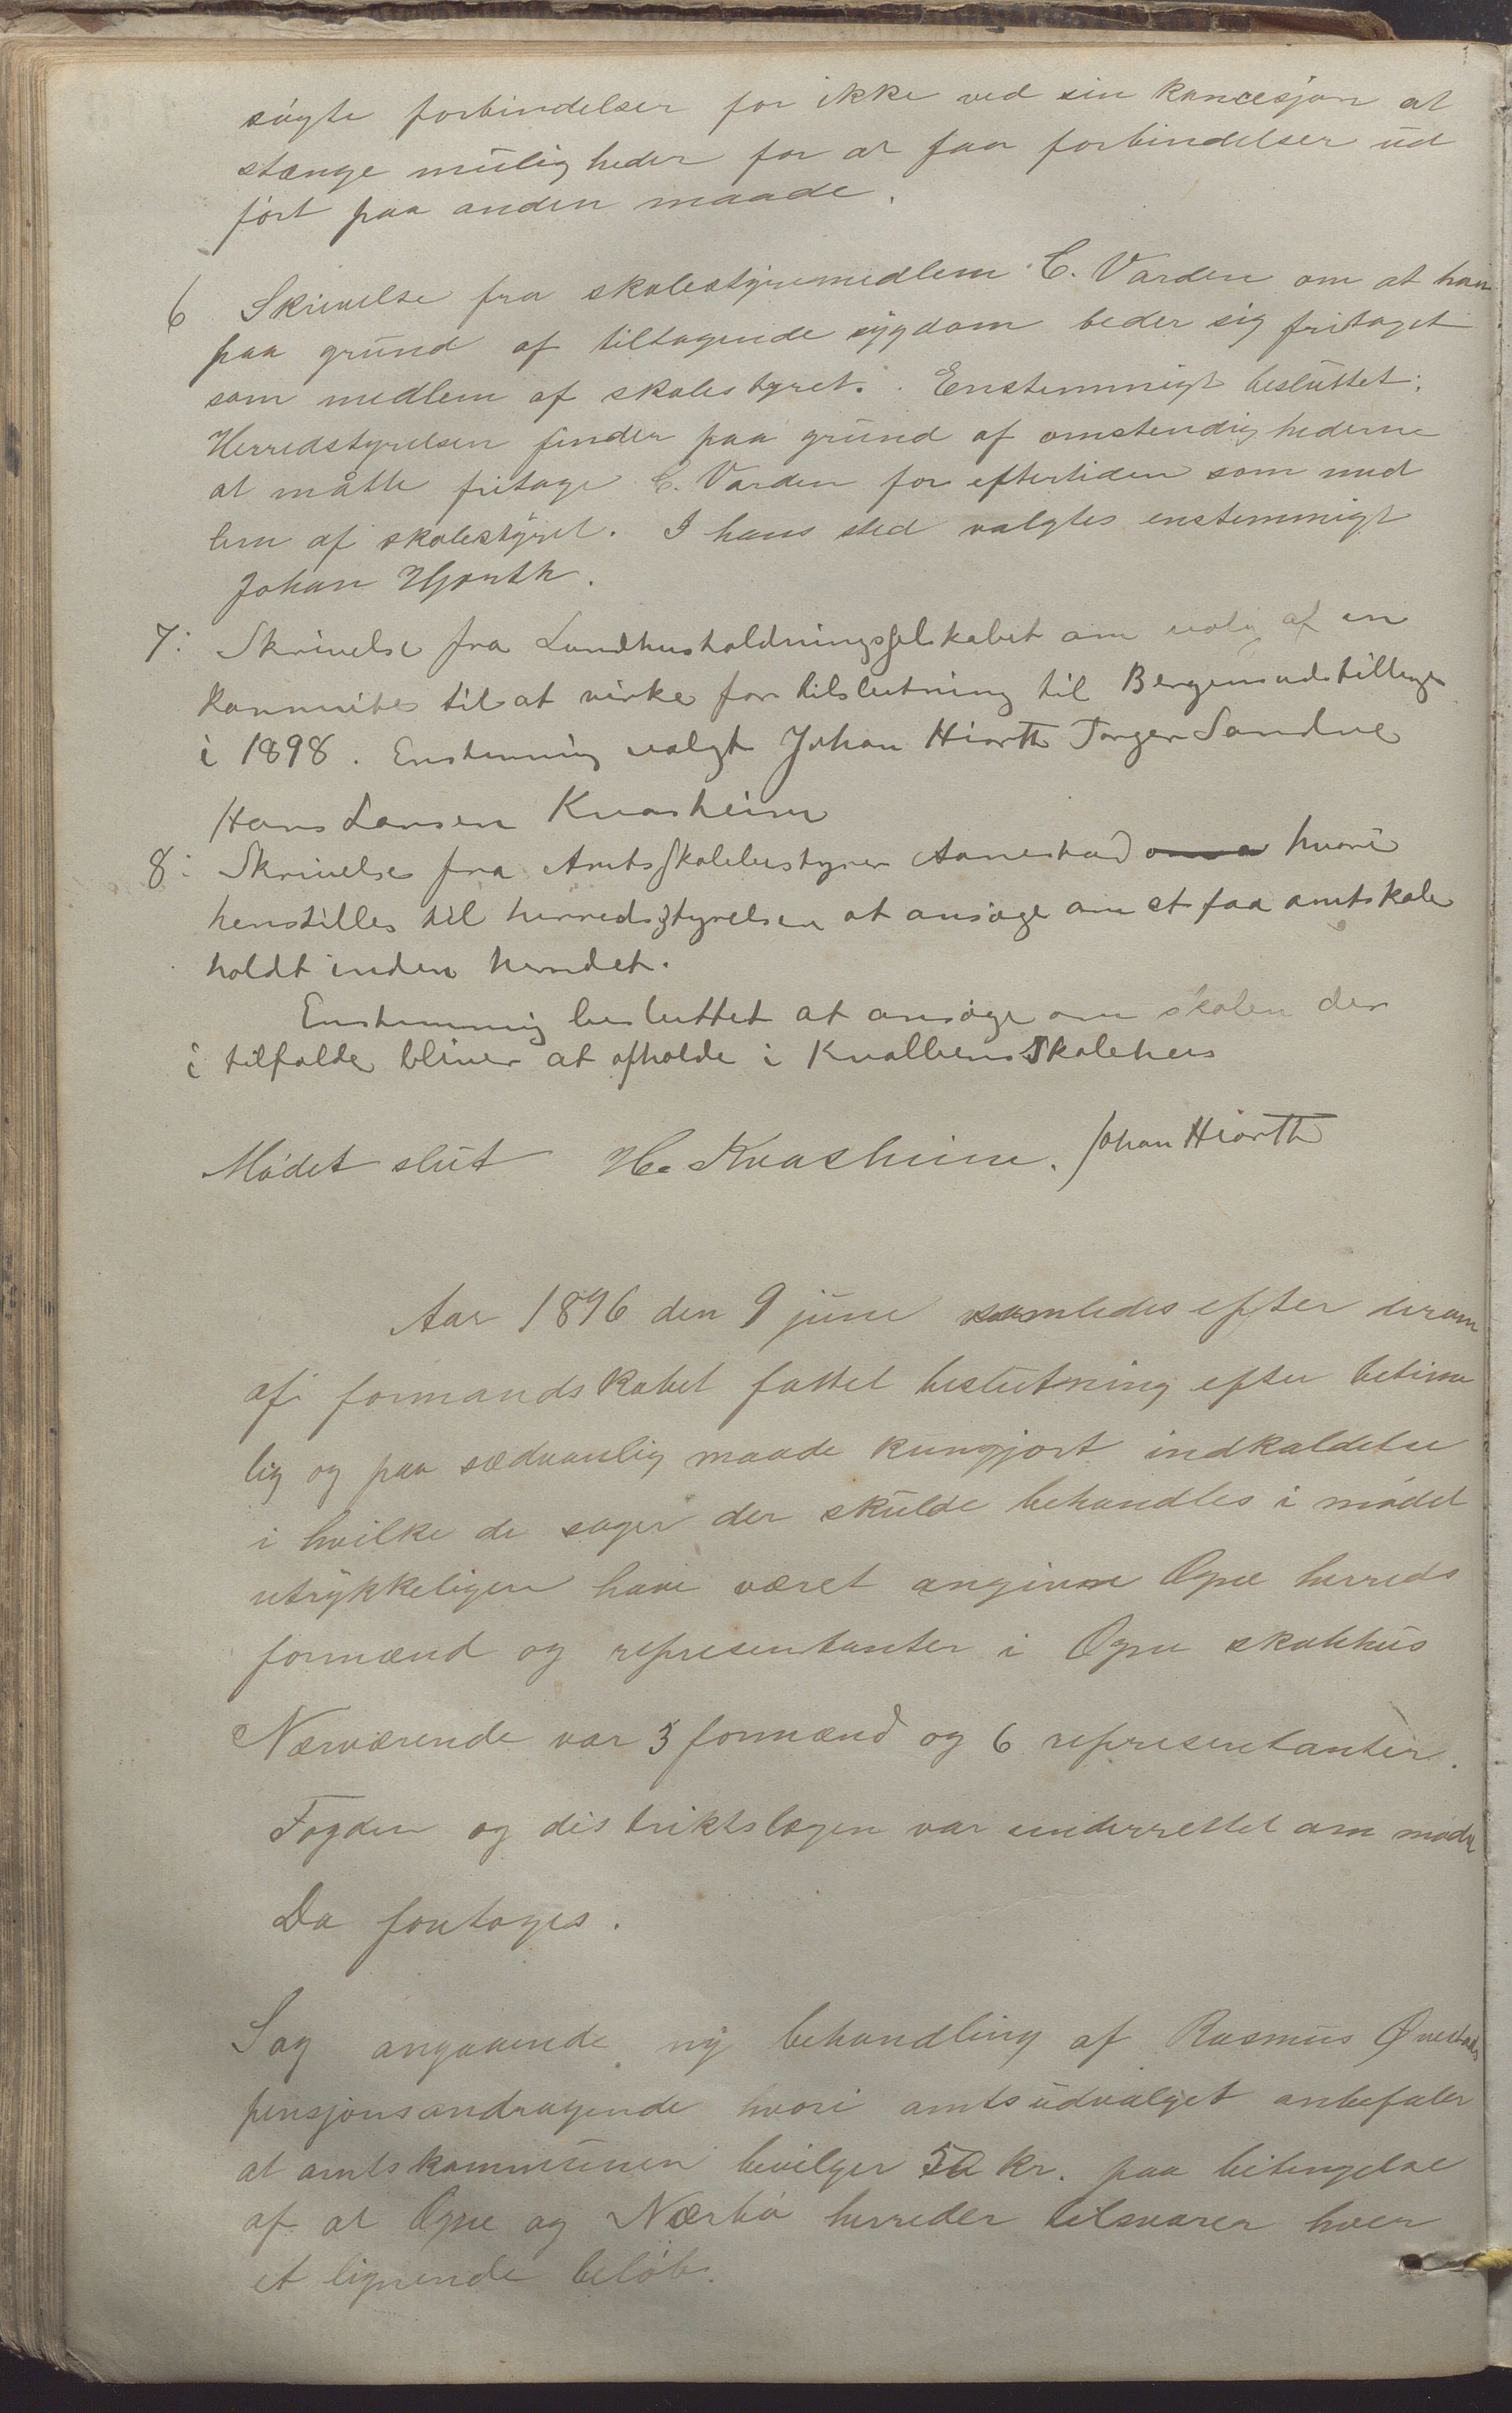 søgte forbindelser for ikke ved sin koncesjon at
stænge muligheder for at faa forbindelser ud
ført paa anden maade.
6 Skrivelse fra skolestyremedlem C. Varden om at han
paa grund af tiltagende sygdom beder sig fritaget
som medlem af skolestyret. Enstemmigt besluttet:
Herredstyrelsen finder paa grund af omstendighederne
at måtte fritage C. Varden for eftertiden som med
lem af skolestyret. I hans sted valgtes enstemmigt
Johan Hjorth.
7: Skrivelse fra Landhusholdningsselskabet om valg af en
kommite til at virke for tilslutning til Bergensudstillingen
i 1898. Enstemmig valgt Johan Hiorth Torger Sandve
Hans Larsen Kvasheim
8: Skrivelse fra Amtsskolebestyrer Aanestad hvori
henstilles til herredsstyrelsen at ansøge om at faa amtskole
holdt inden herredet.
Enstemmig besluttet at ansøge om skolen der
i tilfælde bliver at afholde i Kvalbens Skolehus
Mødet slut H. Kvasheim. Johan Hiorth
Aar 1896 den 9 june samledes efter derom
af formandskabet fattet beslutning efter betime
lig og paa sædvanlig maade kungjort indkaldelse
i hvilke de sager der skulde behandles i mødet
utrykkeligen have været angivne Ogne herreds
formænd og representanter i Ogne skolehus
Nærværende var 3 formænd og 6 representanter.
Fogden og distriktslægen var underrettet om mødet
Da foretoges.
Sag angaaende ny behandling af Rasmus
pensjonsandragende hvori amtsudvalget anbefaler
at amtskommunen bevilger 50 kr. paa betingelse
af at Ogne og Nærbø herreder tilsvarer hver
et lignende beløb.